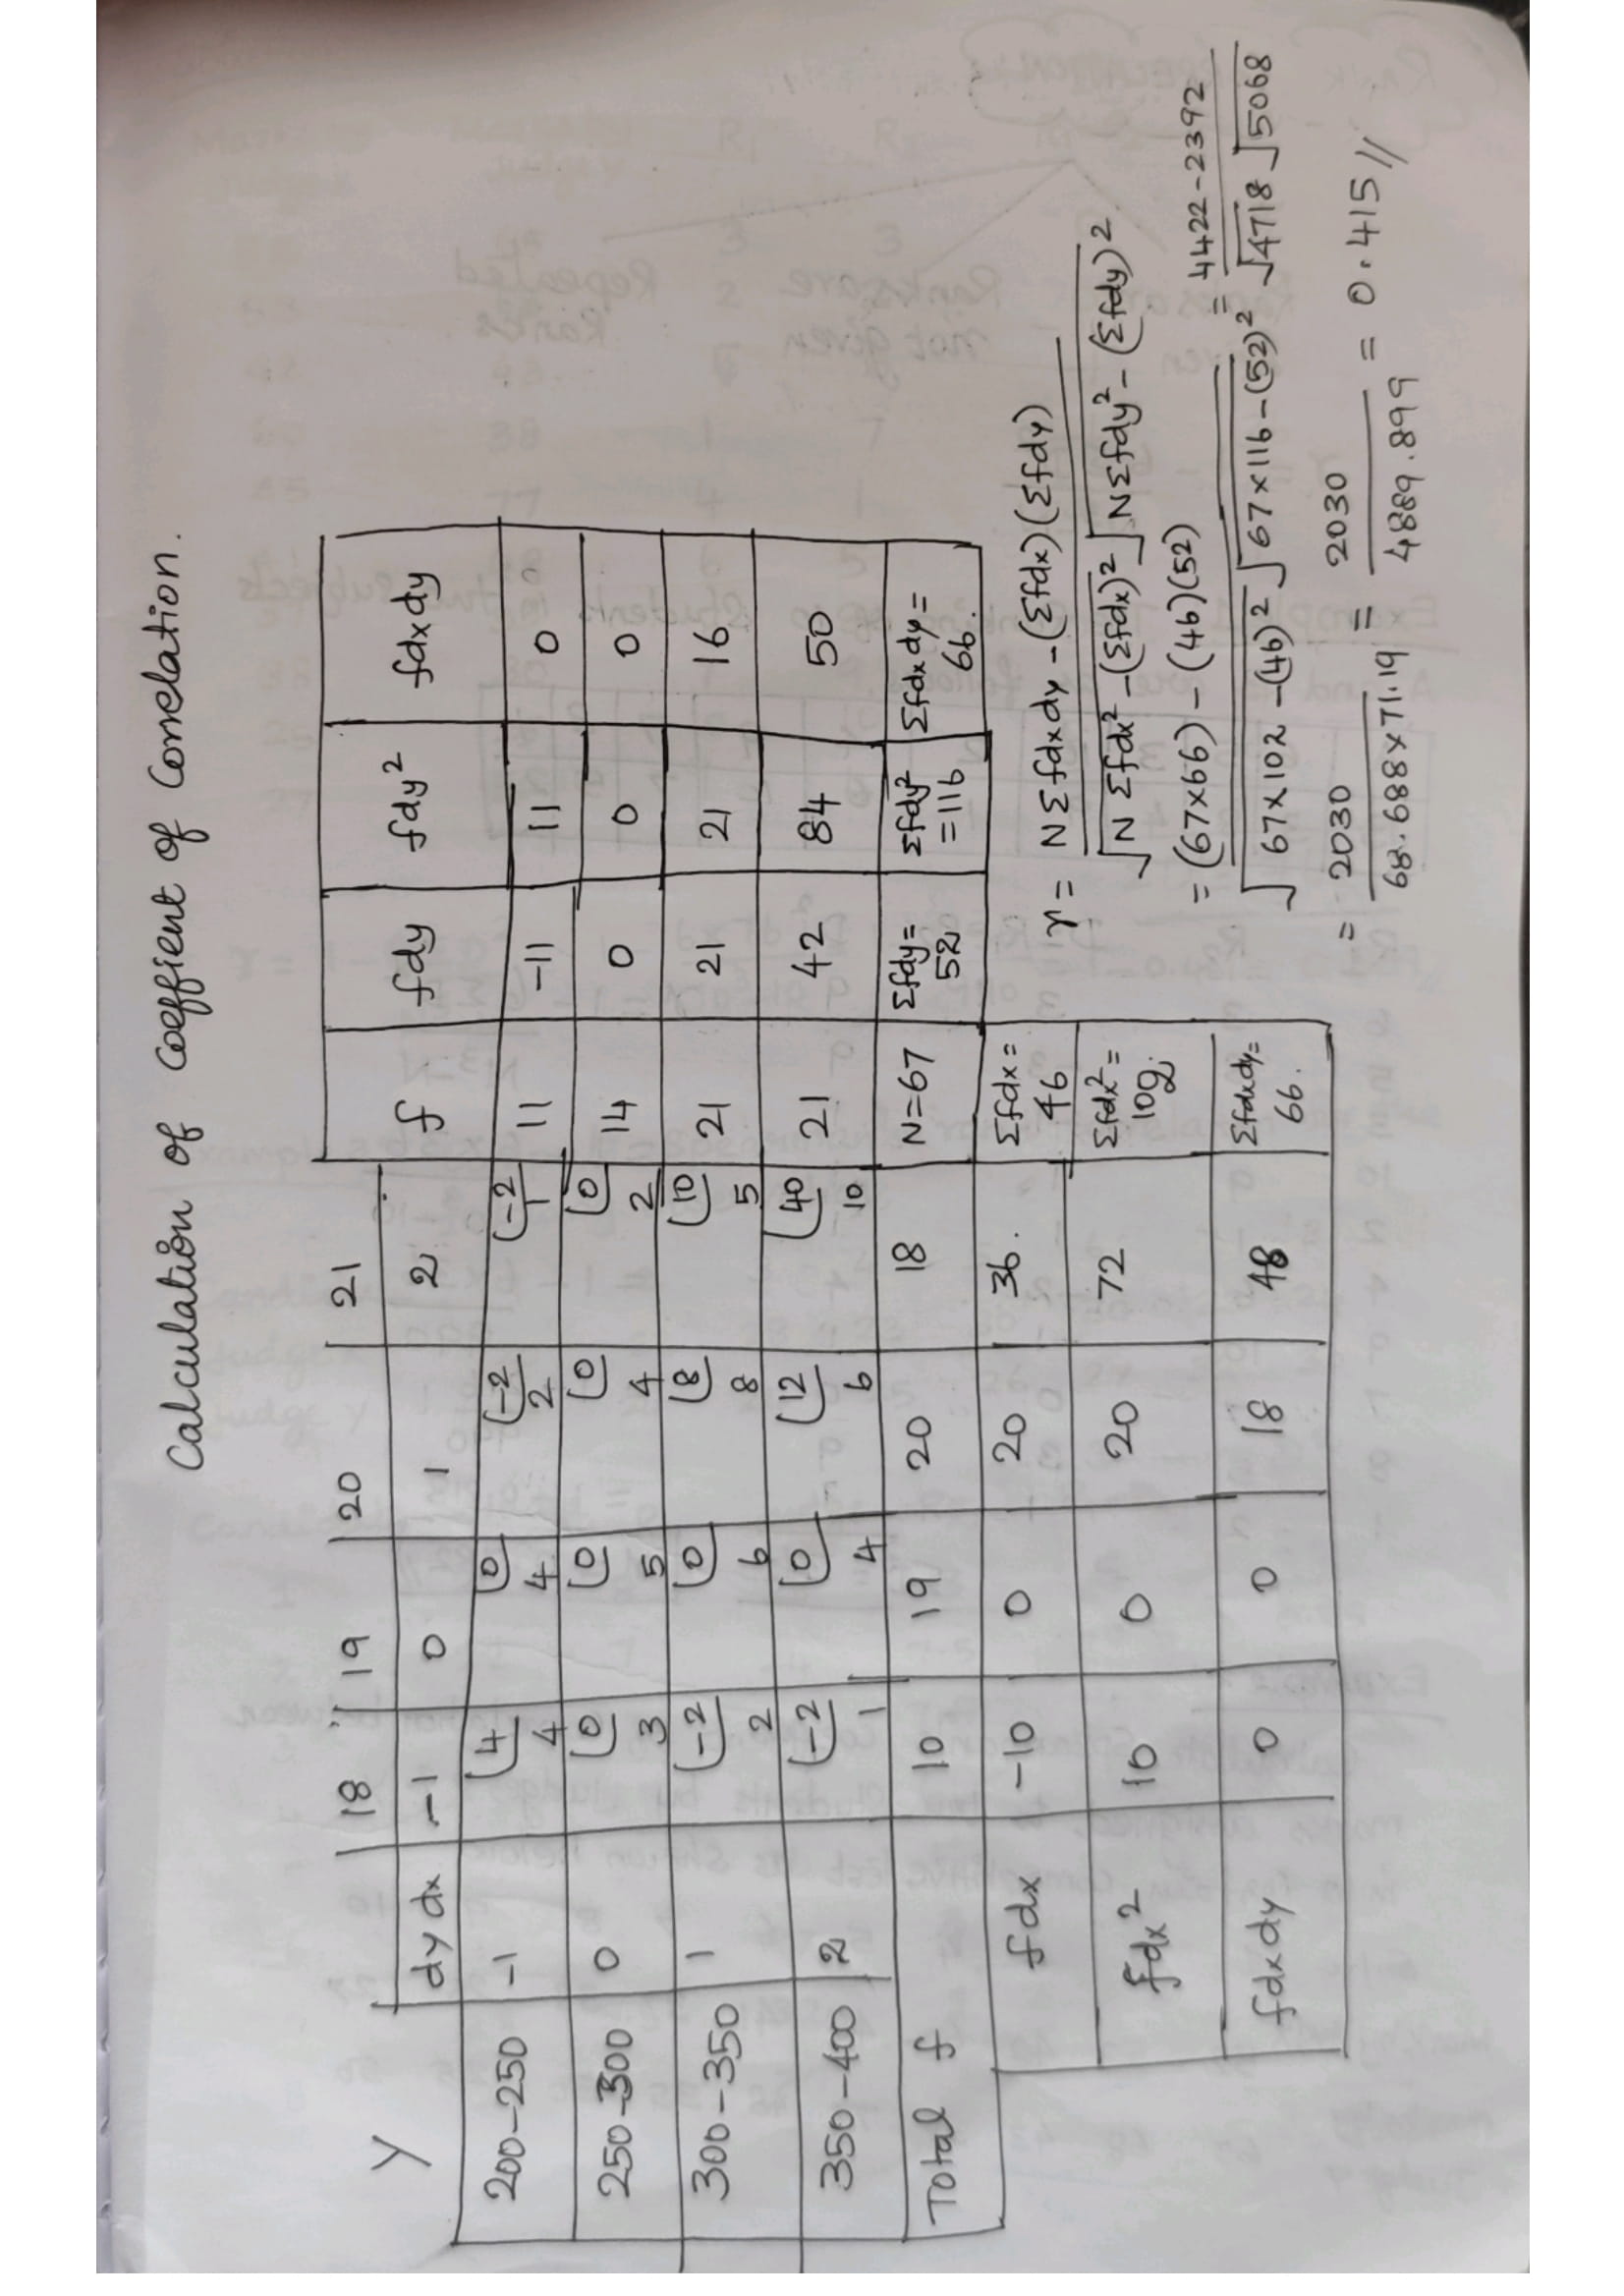 Calculation of Coeffient of Correlation.
18 19 20 21
Y dy dx -1 0 1 2 f fdy fdy² fdxdy
200-250 -1 4 4 0 4 -2 2 -2 1 11 -11 11 0
250-300 0 0 3 0 5 0 4 0 2 14 0 0 0
300-350 1 -2 2 0 6 8 8 10 5 21 21 21 16
350-400 2 -2 1 0 4 12 6 40 10 21 42 84 50
Total f 10 19 20 18 N=67 Σfdy= 52 Σfdy² =116 Σfdxdy= 66.
fdx -10 0 20 36. Σfdx= 46
fdx² 10 0 20 72 Σfdx²= 102.
fdxdy 0 0 18 48 Σfdxdy= 66.
r = NΣfdxdy-(Σfdx)(Σfdy)
√NΣfdx²-(Σfdx)² √NΣfdy²-(Σfdy)²
= (67×66)-(46)(52) = 4422-2392
√67×102-(46)² √67×116-(52)² √4718 √5068
= 2030 = 2030 = 0.415//
68.688×71.19 4889.899